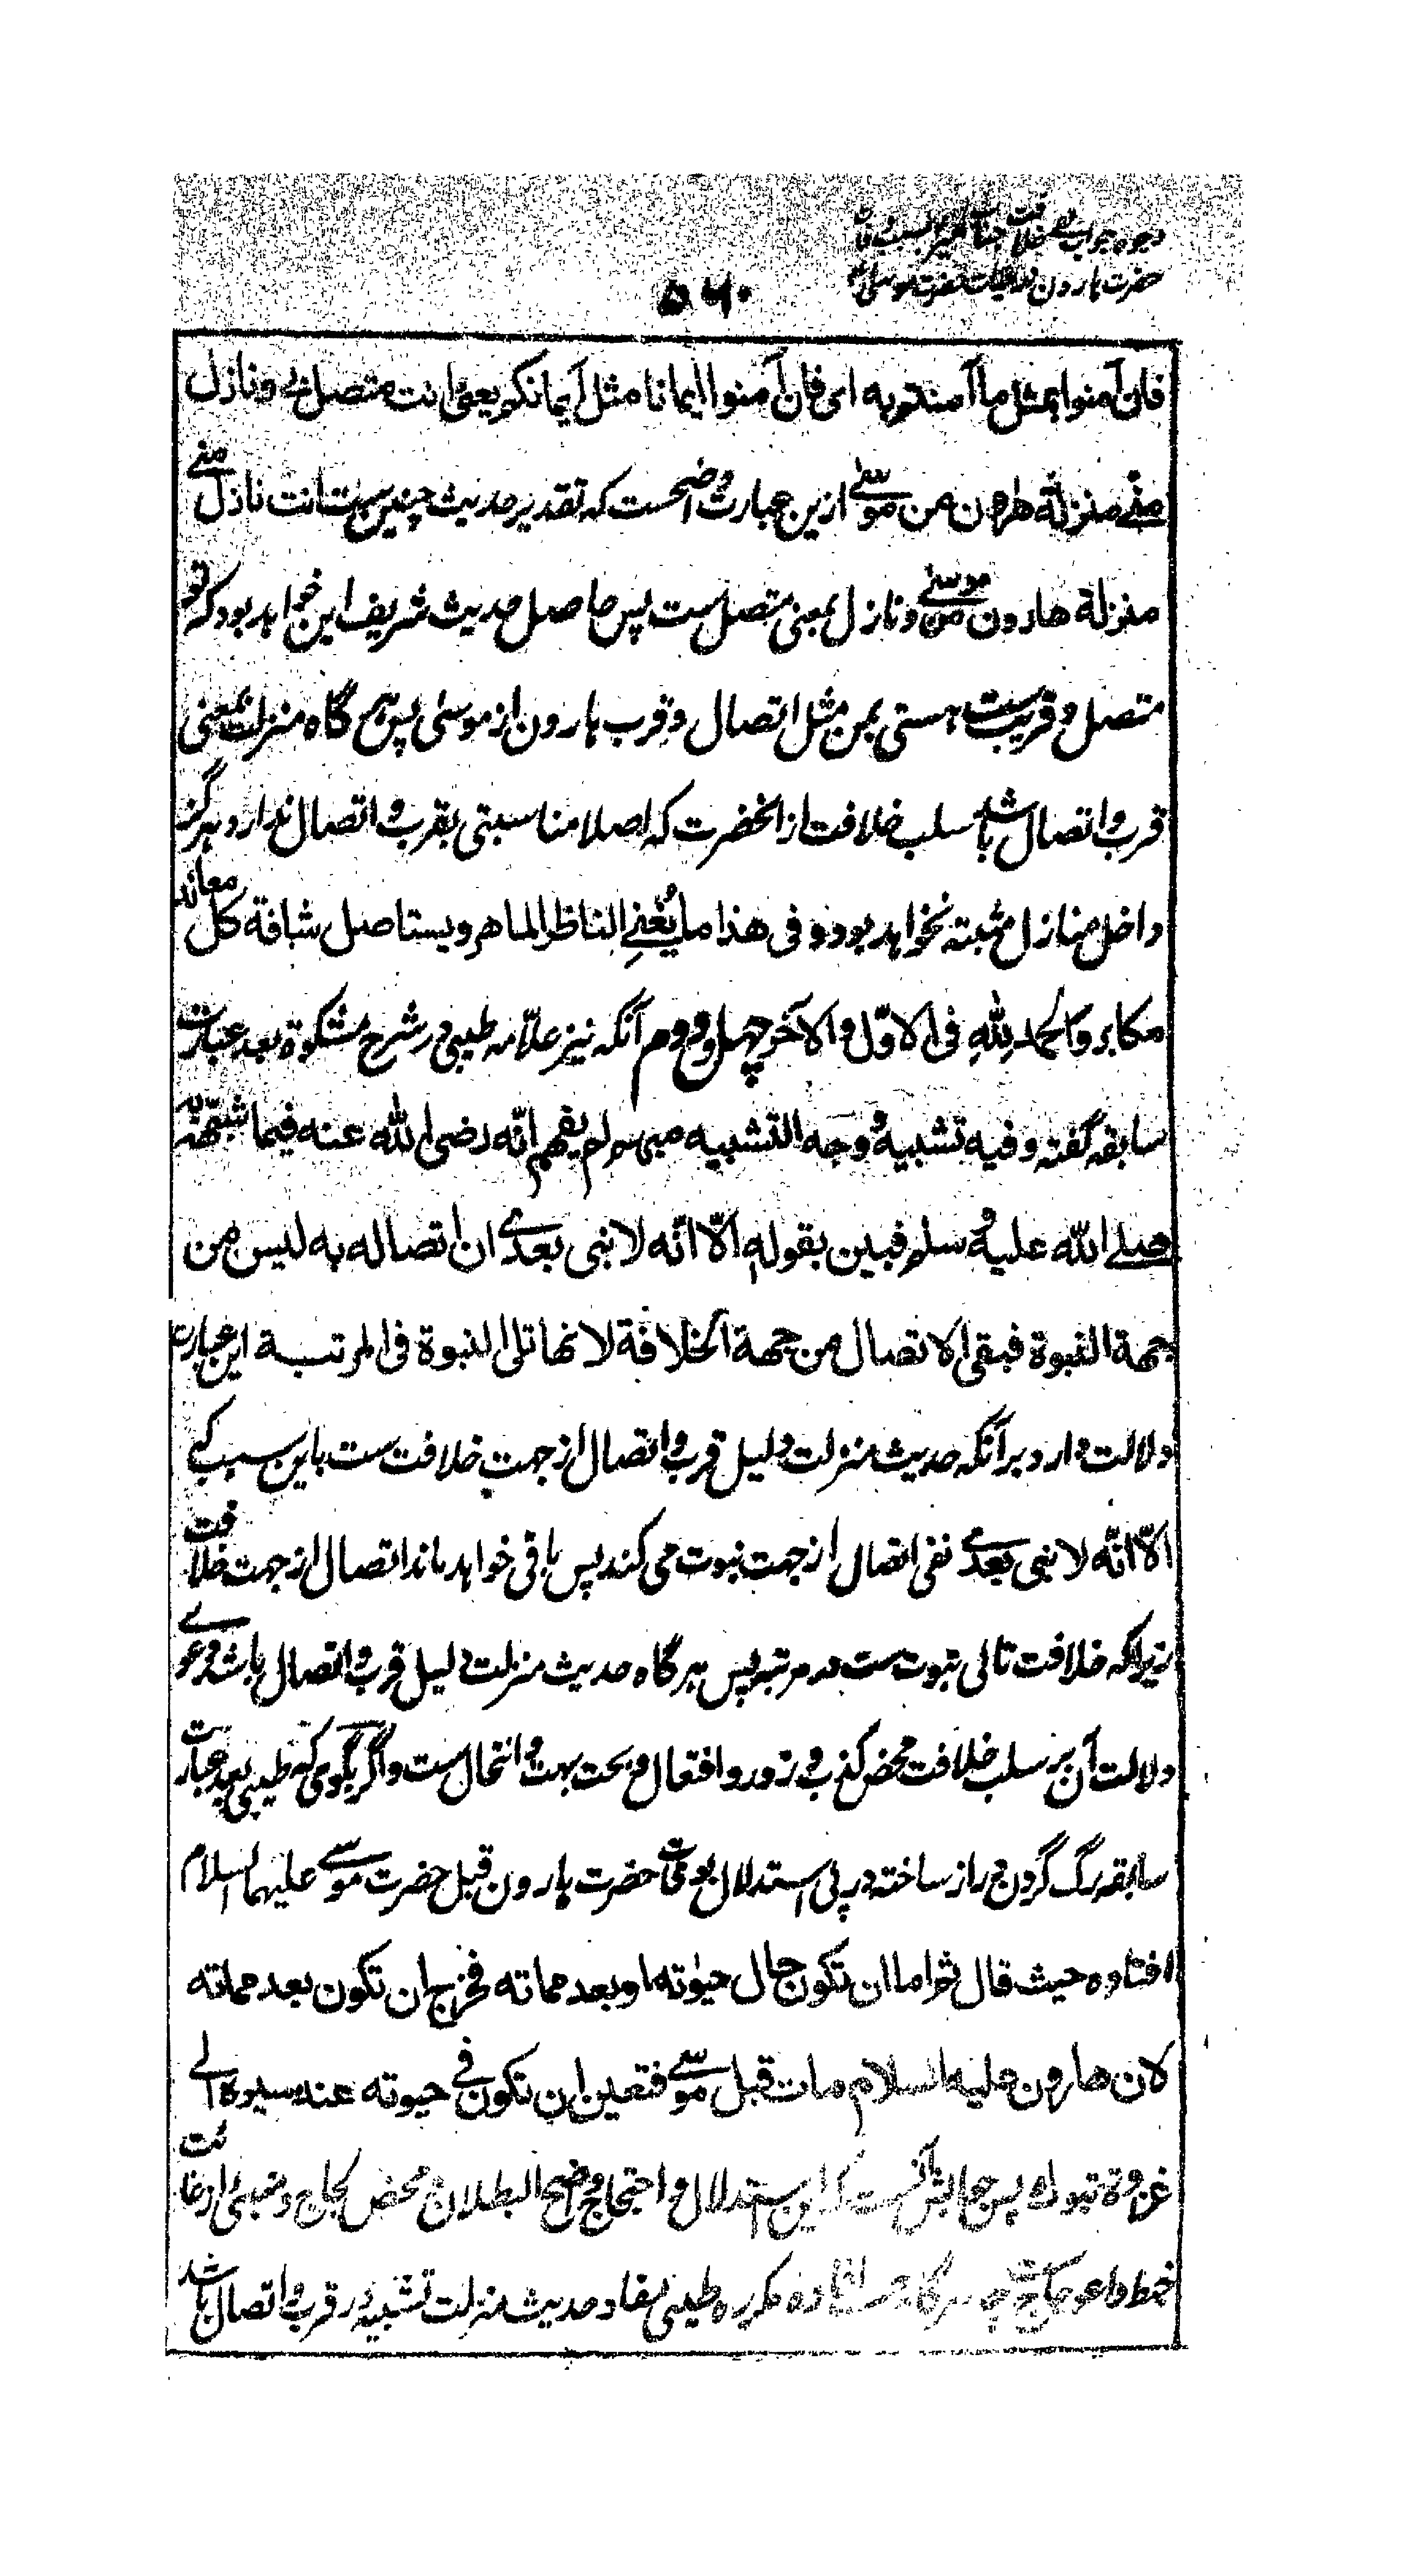 وجوه جواب
حضرت هارون حیات حضرت موسی
۵۶۰
فان آمنوا بمثل ما آمنتم به ای فان آمنوا ایمانا مثل ایمانکم یعنی انت متصل بی و نازل
منی منزلة هارون من موسی ازین عبارت واضحست که تقدیر حدیث چنین ست انت نازل منی
منزلة هارون من موسی و نازل بمعنی متصل ست پس حاصل حدیث شریف این خواهد بود که تو
متصل و قریب هستی بمن مثل اتصال و قرب هارون از موسی پس هر گاه منزلت بمعنی
قرب و اتصال باشد سلب خلافت از آنحضرت که اصلا مناسبتی بقرب و اتصال ندارد هرگز
داخل منازل مثبته نخواهد بود و فی هذا ما یُغنِی الناظر الماهر و یستاصل شافة کل معاند
مکابر و الحمد للهِ فی الاوّل و الآخر چهل و دوم آنکه نیز علّامه طیبی در شرح مشکوة بعد عبارت
سابقه گفته و فیه تشبیه و وجه التشبیه مبهم لم یفهم انّه رضی الله عنه فیما شبّهه به
صلی الله علیه و سلم فبین بقوله الّا انّه لا نبی بعدی ان اتصاله به لیس من
جهة النبوة فبقی الاتصال من جهة الخلافة لانها تلی النبوة فی المرتبة این عبارت
دلالت دارد بر آنکه حدیث منزلت دلیل قرب و اتصال از جهت خلافت ست باین سبب که
الّا انّه لا نبی بعدی نفی اتصال از جهت نبوت می کند پس باقی خواهد ماند اتصال از جهت خلافت
زیراکه خلافت تالی نبوت ست در مرتبه پس هر گاه حدیث منزلت دلیل قرب و اتصال باشد دعوی
دلالت آن بر سلب خلافت محض کذب و زور و افتعال و بحت بهت و انتحال ست و اگر بگوی که طیبی بعد عبارت
سابقه رگ گردن دراز ساخته در پی استدلال بوفات حضرت هارون قبل حضرت موسی علیهما السلام
افتاده حیث قال ثم اما ان تکون حال حیوته او بعد مماته فخرج ان تکون بعد مماته
لان هارون علیه السلام مات قبل موسی فتعین ان تکون فی حیوته عند مسیره الی
غزوة تبوک پس جوابش آنست که این استدلال و احتجاج واضح البطلان محض لجاج و مبنی
خبط و اعوجاج ست چه هر گاه حسب افاده مکرره طیبی مفاد حدیث منزلت تشبیه در قرب و اتصال باشد